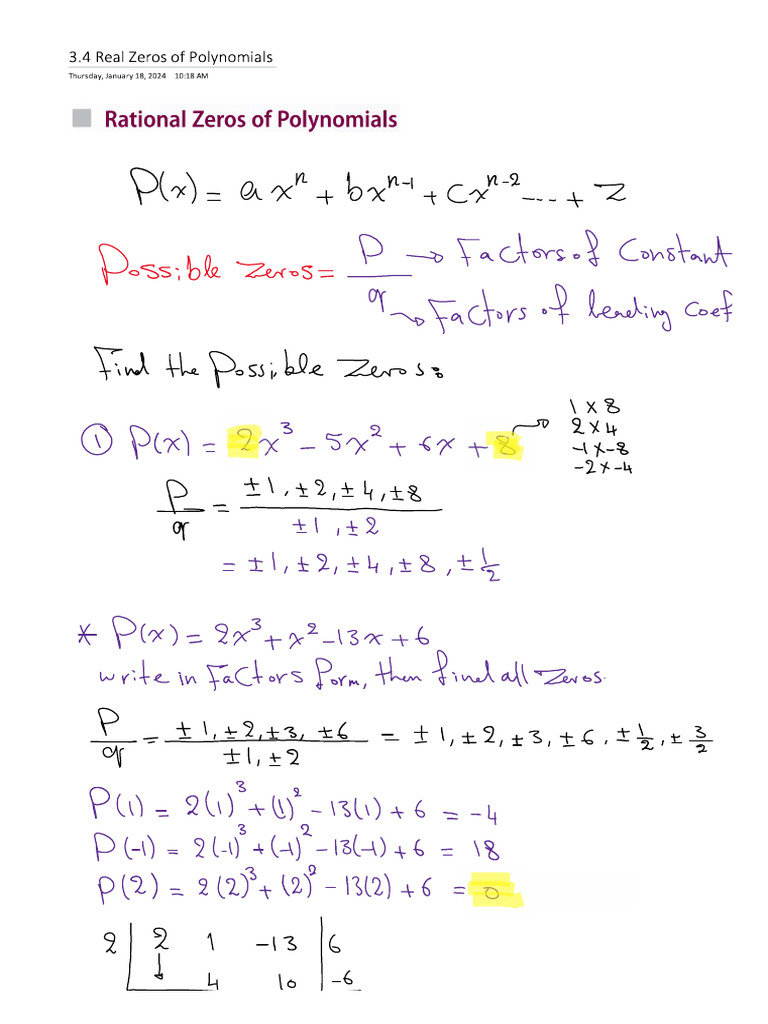 3.4 Real Zeros of Polynomials
Thursday, January 18, 2024 10:18 AM
Rational Zeros of Polynomials
P(x) = axⁿ + bxⁿ⁻¹ + cxⁿ⁻² --- + z
Possible zeros = P/q
P → Factors of Constant
q → Factors of leading coef
Find the Possible zeros:
① P(x) = 2x³ - 5x² + 6x + 8 →
1 x 8
2 x 4
-1 x -8
-2 x -4
P/q = ±1, ±2, ±4, ±8 / ±1, ±2
= ±1, ±2, ±4, ±8, ±1/2
* P(x) = 2x³ + x² - 13x + 6
write in Factors form, then find all zeros.
P/q = ±1, ±2, ±3, ±6 / ±1, ±2 = ±1, ±2, ±3, ±6, ±1/2, ±3/2
P(1) = 2(1)³ + (1)² - 13(1) + 6 = -4
P(-1) = 2(-1)³ + (-1)² - 13(-1) + 6 = 18
P(2) = 2(2)³ + (2)² - 13(2) + 6 = 0
2 | 2 1 -13 | 6
↓ 4 10 | -6